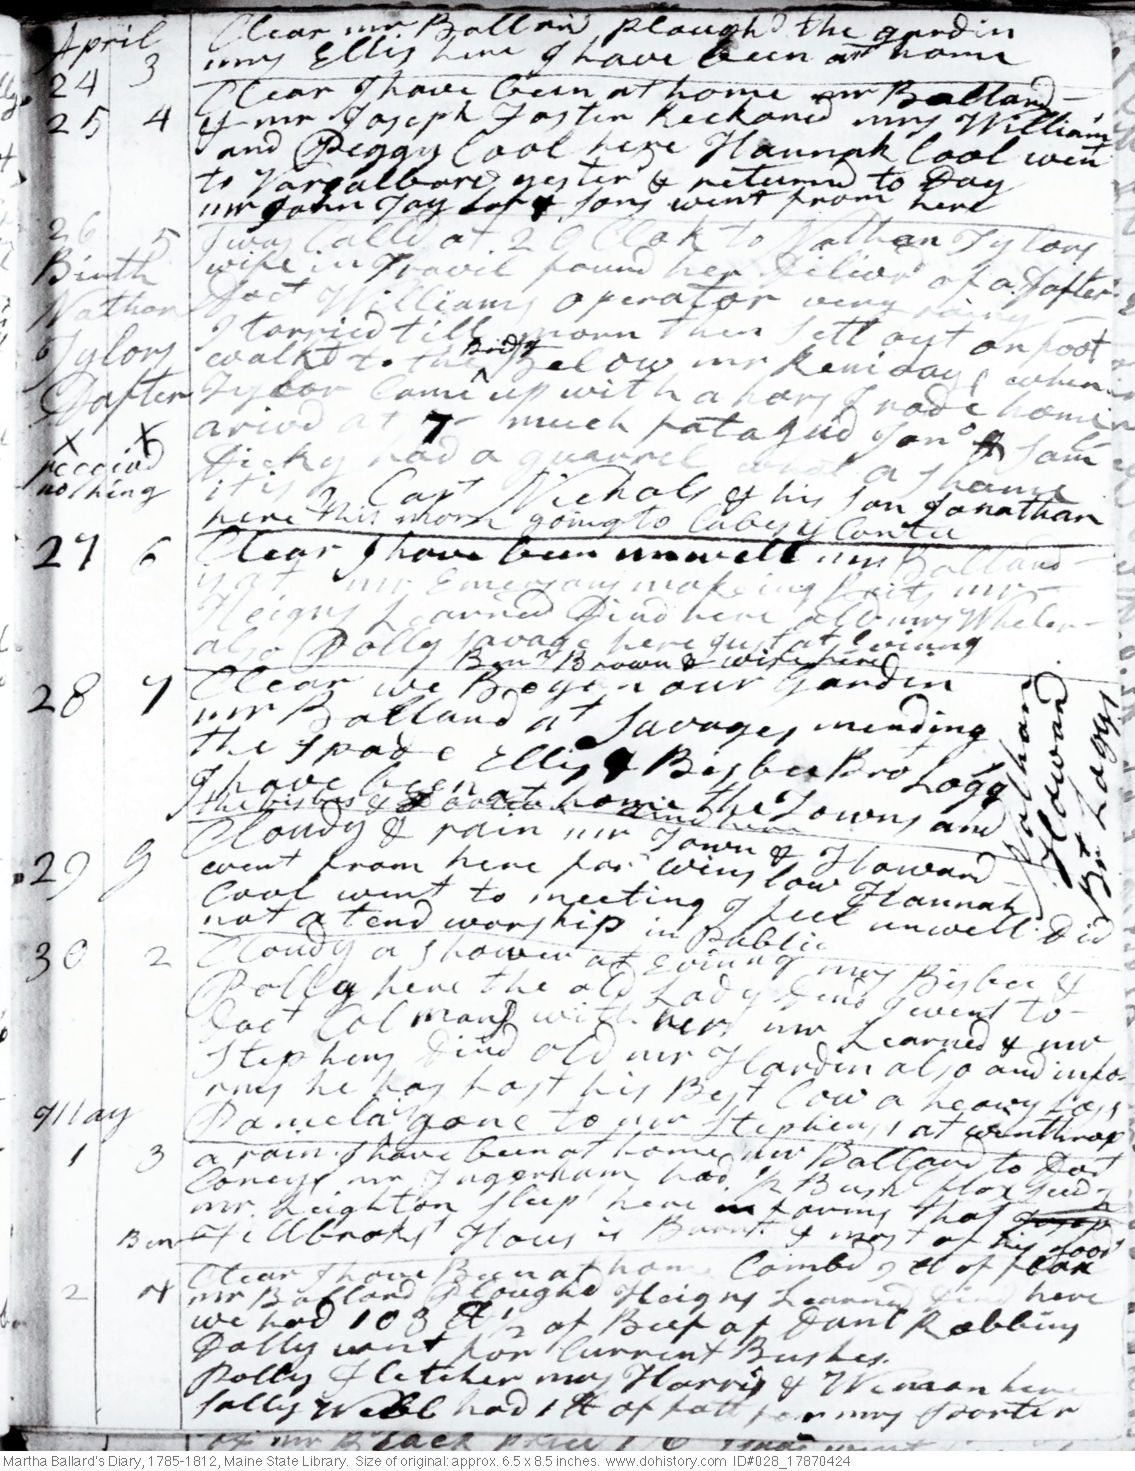 April
24 3 Clear mr Ballard Plough'd the gardin
mrs Ellis here I have been at home
25 4 Clear I have been at home mr Ballard
& mr Joseph Foster Reckoned mrs William
and Peggy Cool here Hannah Cool went
to Varsalboro yester'd & returnd to Day
mr John Jay & sons went from here
26 5 I was Calld at 2 O Clok to Nathan Tylors
Birth wife in Travil found her Diliverd of a Dafter
Nathan Doct Williams operator very rainy
Tylors I tarried till morn then sett out on foot
Dafter walkt to the Bridg Below mr Kenidays when
Tylor Came up with a hors I rode home
X X arived at 7 much fatagud Jon<sup>o</sup> & Sam
receivd Dicky had a quarrel a shame
nothing it is Capt Nichols & his son Jonathan
here this morn going to Cabesy Contee
27 6 Clear I have been unwell mr Ballard
mr Emersons makeing Raits mr
Heigns Learned Dind here allso mrs Wheler
also Polly Savage here just at Evinng
Benn Brown & wife here
28 7 Clear we Begon our Gardin
mr Ballard at Savages mending
the spade Ellis & Bisbee Bro Logg
I have been at home the Towns and
Dind here
Nathan
Howard
Br Loggs
29 G Cloudy & rain mr Town & Howard
went from here for winslow Hannah
Cool went to meeting I feel unwell Did
not atend worship in Publick
30 2 Cloudy a shower at Evinng mrs Bisbee &
Polly here the old Lady Dind I went to
Doct Colmans with her mr Learned & mr
Stephens Dind old mr Hardin also and info
rms he has host his Best Cow a heavy loss
Pamela gone to mr Stephens's at winthrop
May
1 3 a rain I have been at home mr Ballard to Doct
Coneys mr Ingerham had ½ Bush flax seed
mr Leighton sleep here informs that
Ben Hillbroks' Hous is Burnt & most of his Goods
2 4 Clear I have Been at home Combd of flax
mr Ballard Ploughd Heigns Learned Dind here
we had 103 ½ of Beef of Danl Robbins
Dolly went for Current Bushes.
Polly Fletcher mrs Harris & Weman here
Sally Webb had 1 of salt for mrs Porter
of mr Black price 1/6
Martha Ballard's Diary, 1785-1812, Maine State Library. Size of original: approx. 6.5 x 8.5 inches. www.dohistory.com ID#028_17870424